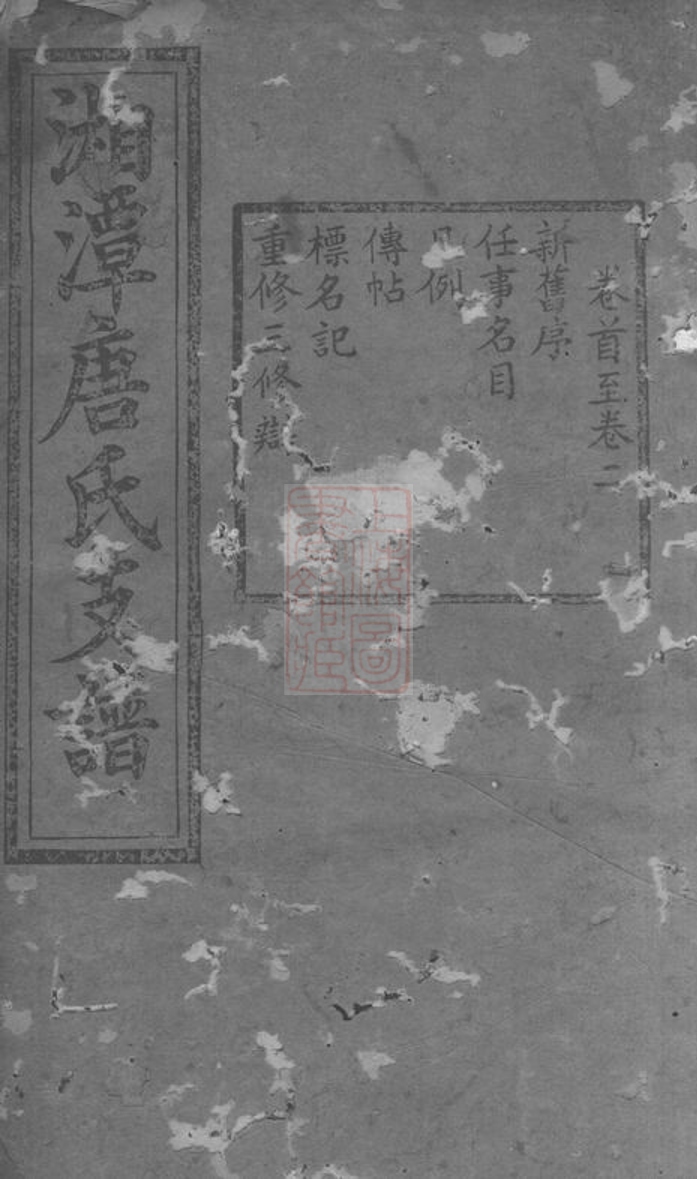 卷首至卷二
新舊序
任事名目
凡例
傳帖
標名記
重修三修
湘潭唐氏支譜